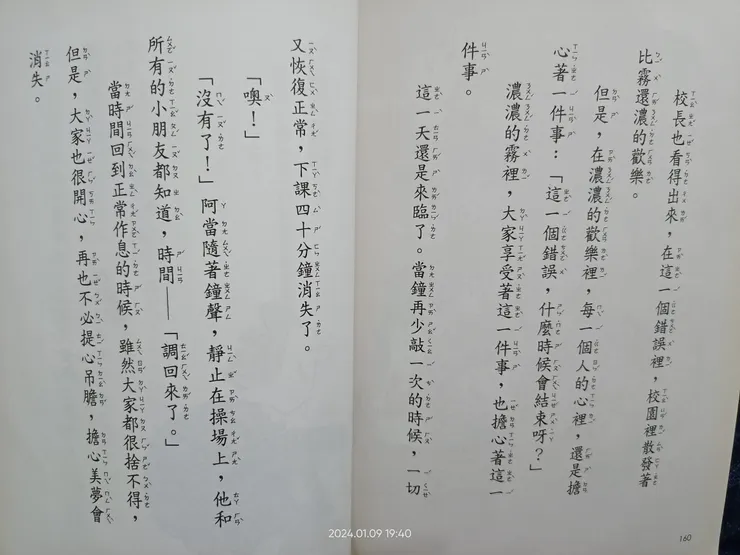 校長也看得出來，在這一個錯誤裡，校園裡散發著
比霧還濃的歡樂。
但是，在濃濃的歡樂裡，每一個人的心裡，還是擔
心著一件事：「這一個錯誤，什麼時候會結束呀？」
濃濃的霧裡，大家享受著這一件事，也擔心著這一
件事。
這一天還是來臨了。當鐘再少敲一次的時候，一切
160
又恢復正常，下課四十分鐘消失了。
「噢！」
「沒有了！」阿當隨著鐘聲，靜止在操場上，他和
所有的小朋友都知道，時間——「調回來了。」
當時間回到正常作息的時候，雖然大家都很捨不得，
但是，大家也很開心，再也不必提心吊膽，擔心美夢會
消失。
2024.01.09 19:40